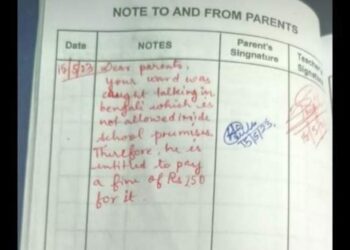 NOTE TO AND FROM PARENTS
Date
NOTES
Parent's
Singnature
Teacher
Signatur
15/5/23
Dear parents,
Your ward was
caught talking in
bengali which is
not allowed inside
school premises.
Therefore, he is
entitled to pay
a fine of Rs 250
for it.
15/5/23